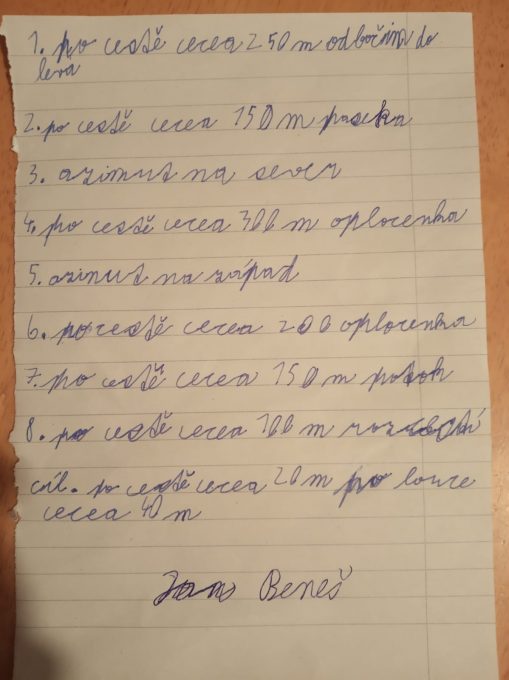 1. po cestě cecea 250 m odbočím do
leva
2. po cestě cecea 150 m paseka
3. azimut na sever
4. po cestě cecea 300 m oplocenka
5. azimut na západ
6. po cestě cecea 200 oplocenka
7. po cestě cecea 150 m potok
8. po cestě cecea 100 m rozcestí
cíl. po cestě cecea 20 m po louce
cecea 40 m
Jan Beneš